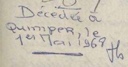 Décédée à
Quimper, le
1er Mai 1969